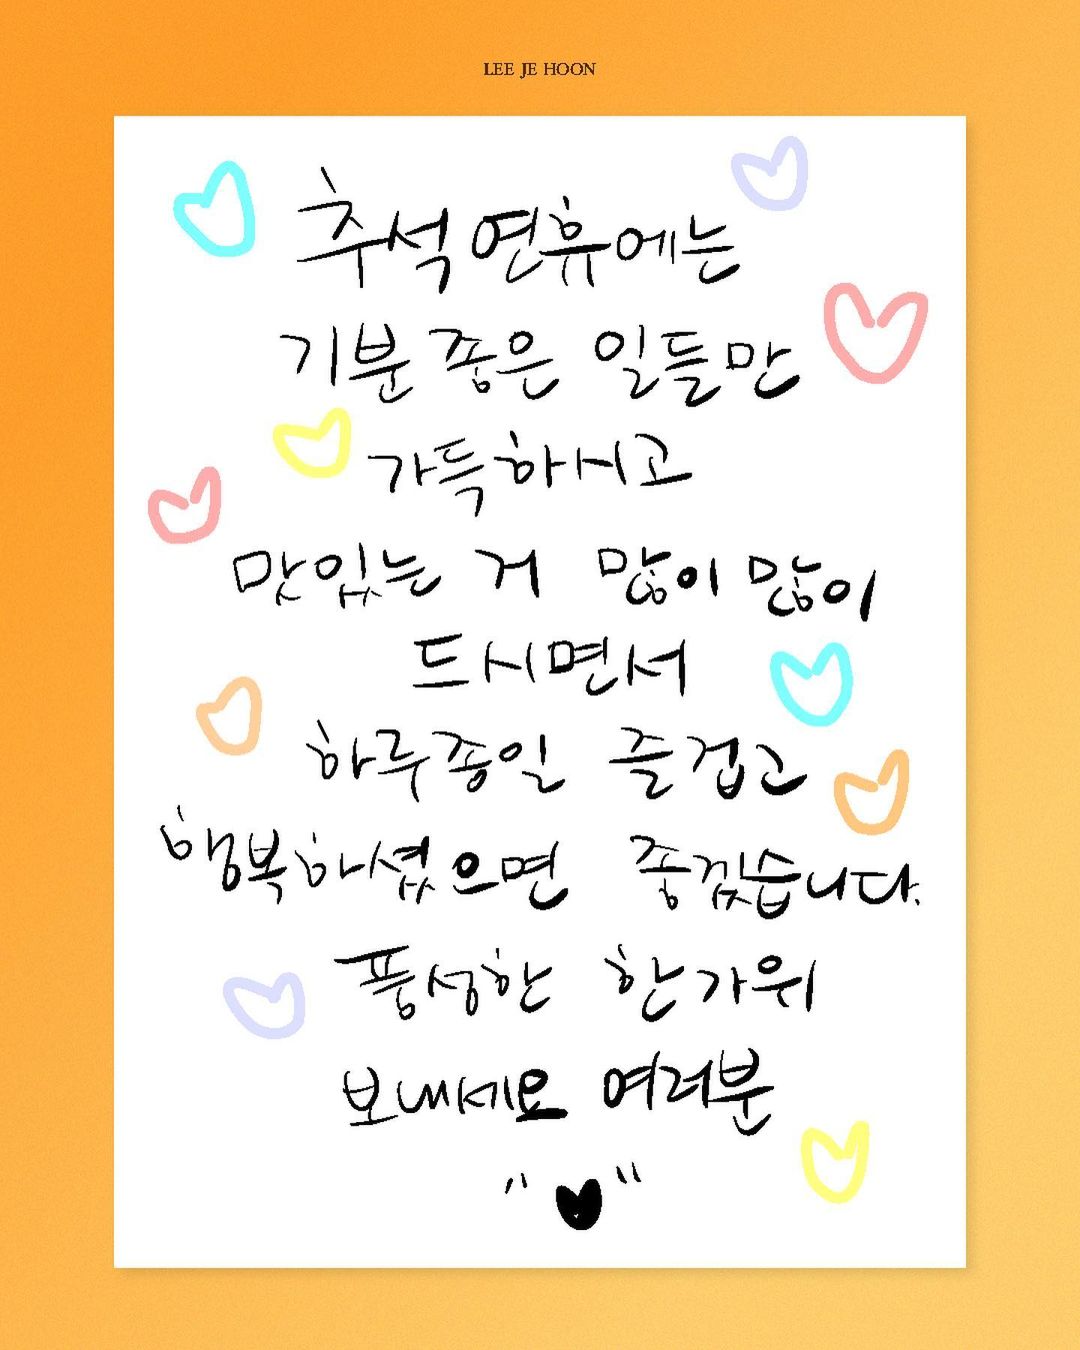 LEE JE HOON
추석 연휴에는
기분 좋은 일들만
가득하시고
맛있는 거 많이 많이
드시면서
하루종일 즐겁고
행복하셨으면 좋겠습니다.
풍성한 한가위
보내세요 여러분
"♥"